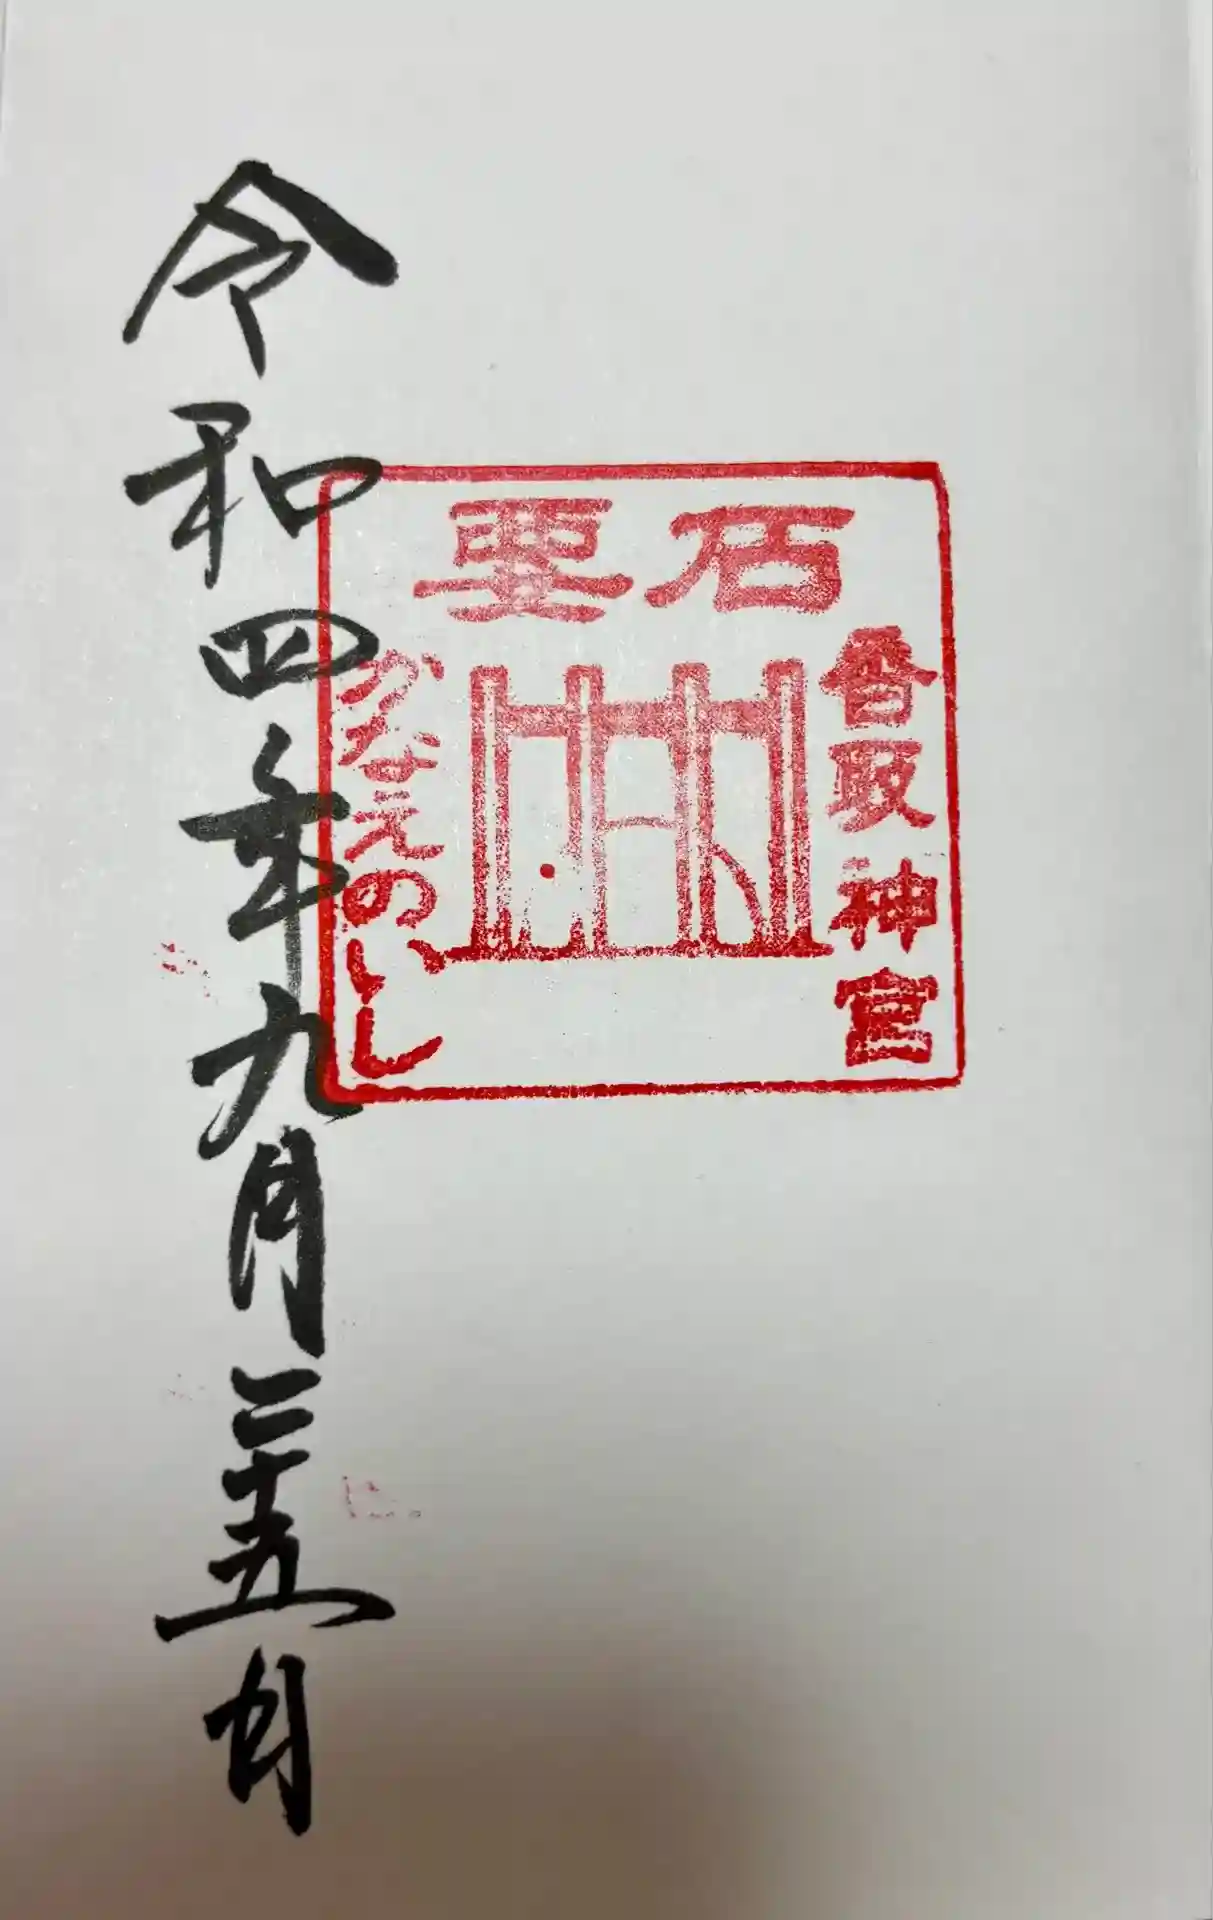 要石
香取神宮
かなえのいし
令和四年九月二十五日